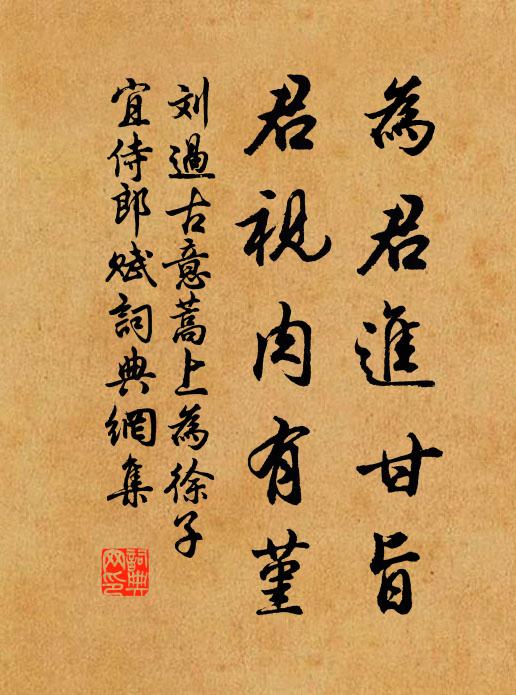 為君進甘旨
君視肉有堇
刘過古意蒿上為徐子
宜侍郎赋詞典網集
詞典
网印